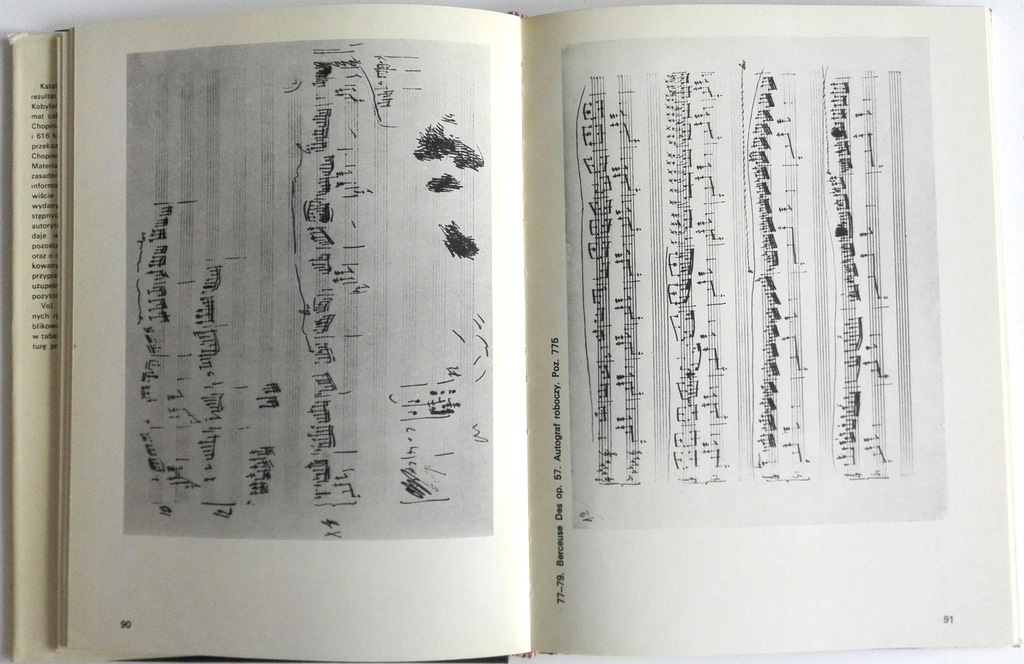 Katal
rezultat
Kobylań
mat co
Chopin
i 616 k
przekaz
Chopin
Materia
zasadn
informa
wiście
wydany
stępnyc
autoryt
daje w
pozosta
oraz o r
kowany
przypis
uzupełn
pozytor
Vol.
nych rę
blikowa
w tabel
turę pr
90
77–79. Berceuse Des op. 57. Autograf roboczy. Poz. 775
91